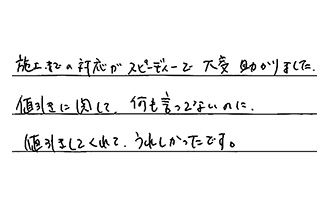 施工までの対応がスピーディーで大変助かりました。
値引きに関して、何も言ってないのに、
値引きしてくれて、うれしかったです。